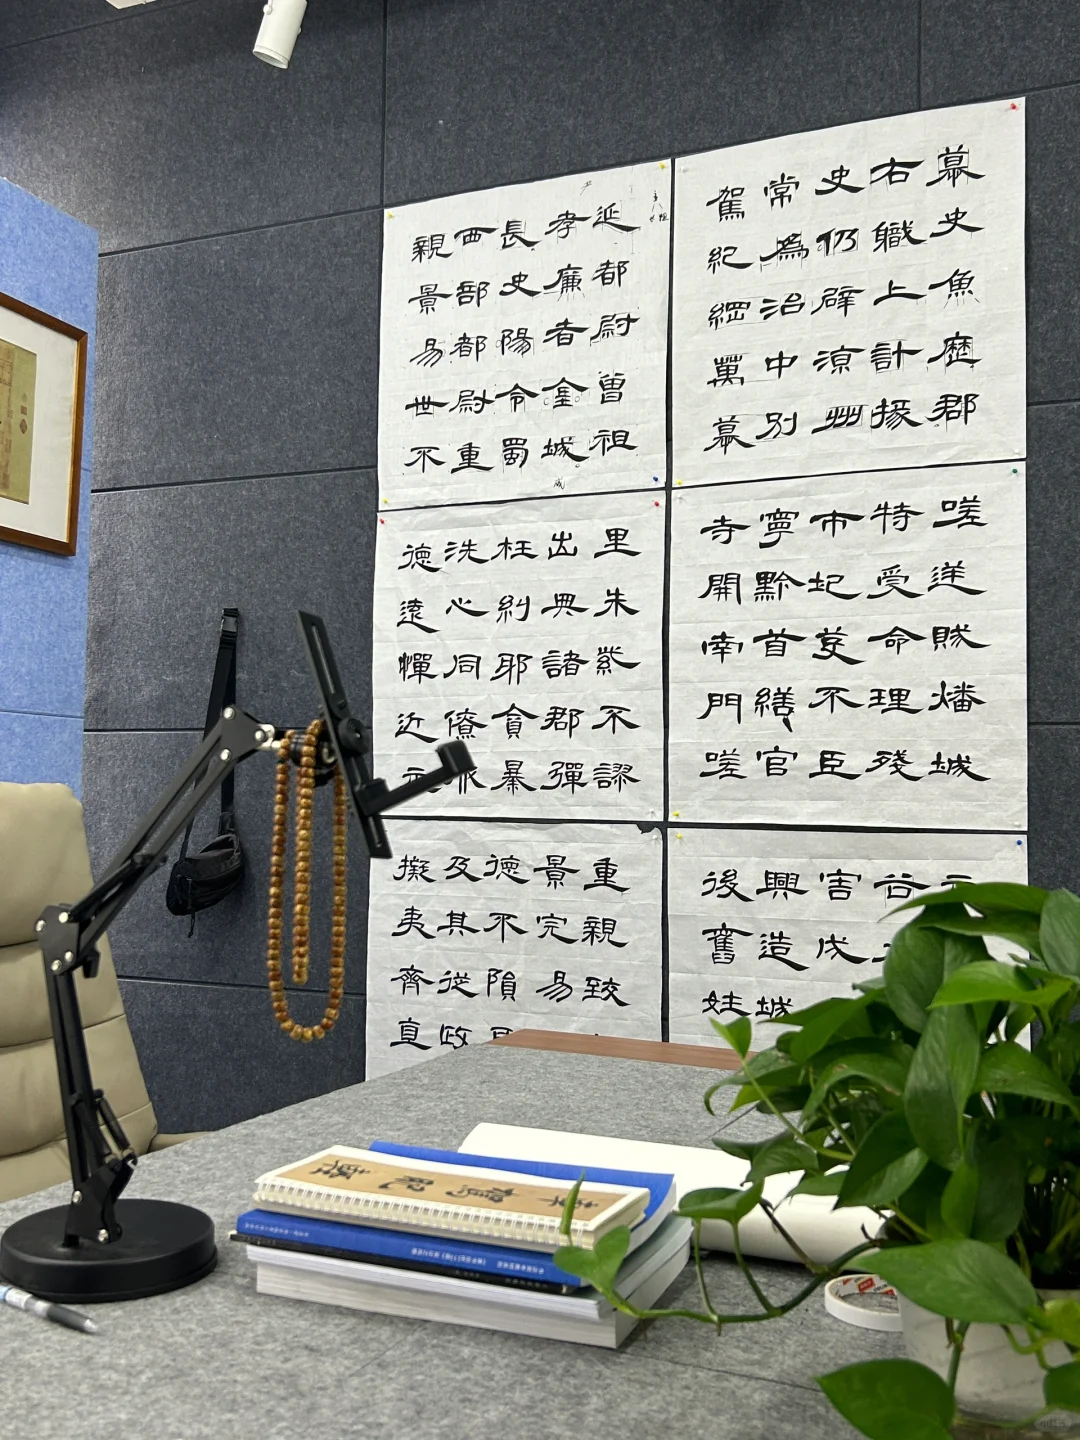 幕史魚歷郡
右職上計掾
史仍辟涼州
常為治中別
駕紀綱萬幕
延都尉曾祖
孝廉者金城
長史陽令蜀
西部都尉重
親景易世不
嗟送賊燔城
特受命理殘
市圮荄不臣
寧黔首繕官
寺開南門嗟
里朱紫不謬
出典諸郡彈
枉糾邪貪暴
洗心同僚
德遠憚近
谷
害戊
興造城
後舊姓
重親致
景完易
德不隕
及其從政
擬夷齊直